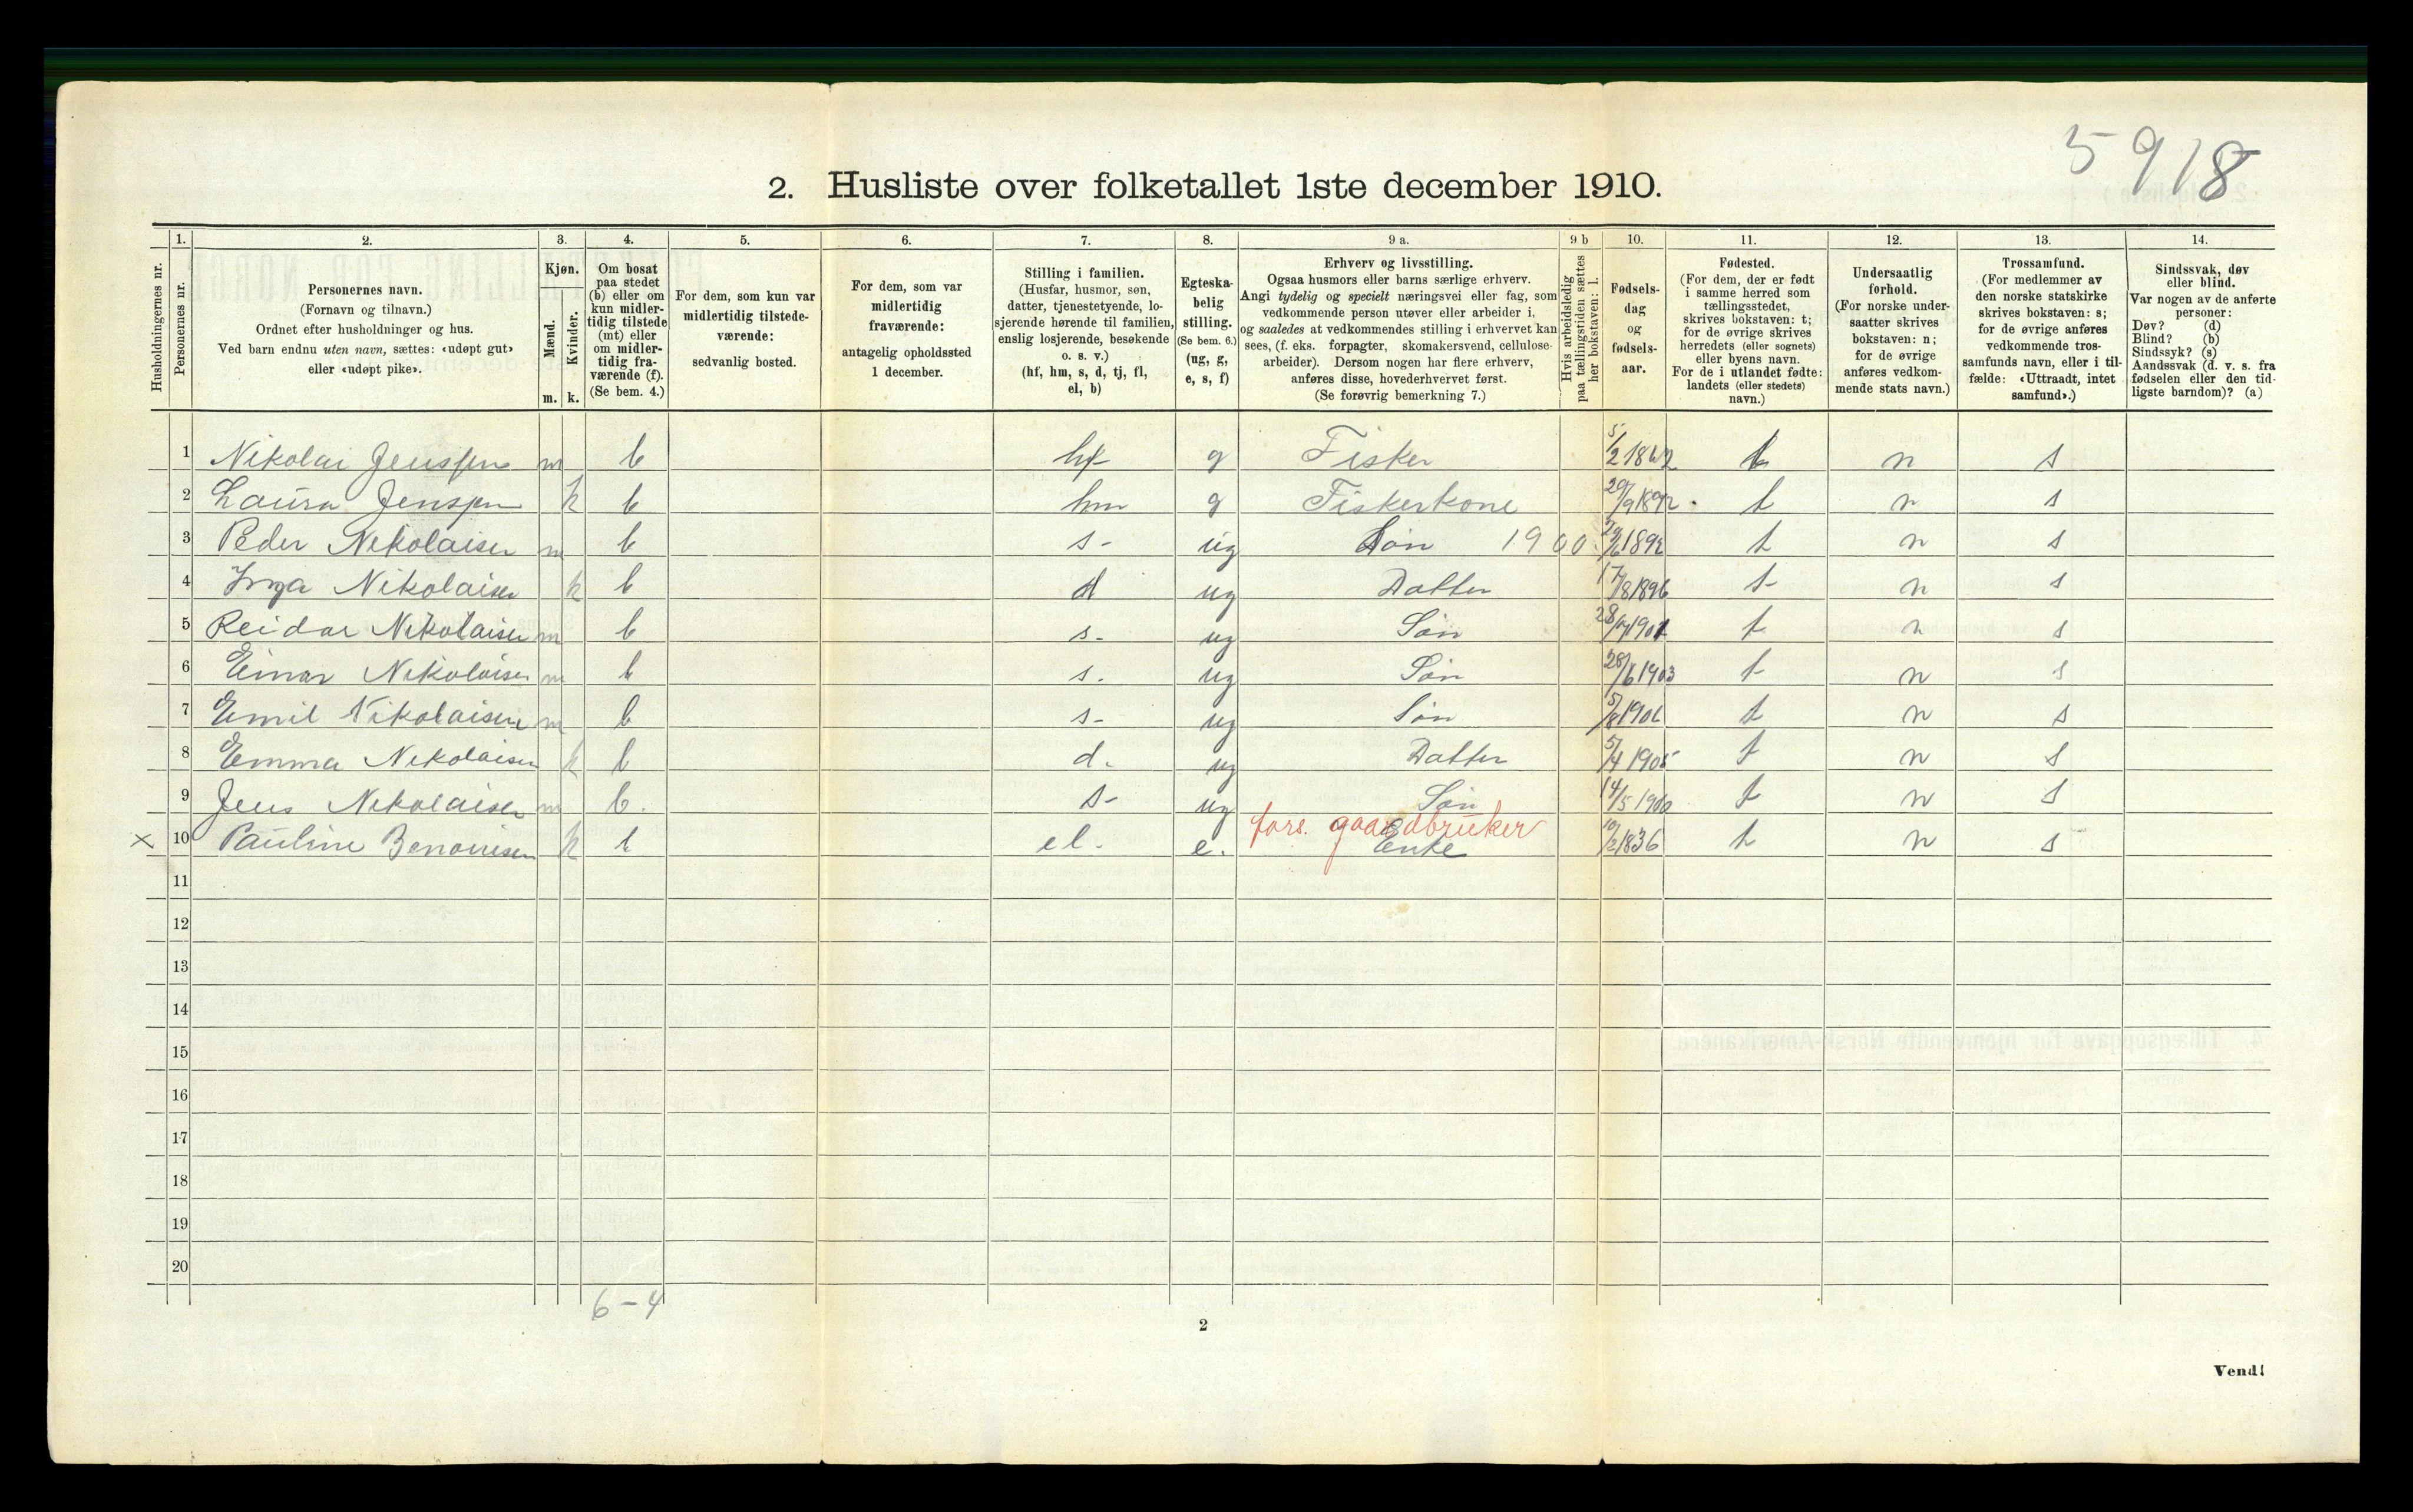 5918
2. Husliste over folketallet 1ste december 1910.
1. 2. 3. 4. 5. 6. 7. 8. 9 a. 9 b 10. 11. 12. 13. 14.
Husholdningernes nr.
Personernes nr.
Personernes navn.
(Fornavn og tilnavn.)
Ordnet efter husholdninger og hus.
Ved barn endnu uten navn, sættes: «udøpt gut»
eller «udøpt pike».
Kjøn.
Mænd.
Kvinder.
m. k.
Om bosat
paa stedet
(b) eller om
kun midler-
tidig tilstede
(mt) eller
om midler-
tidig fra-
værende (f).
(Se bem. 4.)
For dem, som kun var
midlertidig tilstede-
værende:
sedvanlig bosted.
For dem, som var
midlertidig
fraværende:
antagelig opholdssted
1 december.
Stilling i familien.
(Husfar, husmor, søn,
datter, tjenestetyende, lo-
sjerende hørende til familien,
enslig losjerende, besøkende
o. s. v.)
(hf, hm, s, d, tj, fl,
el, b)
Egteska-
belig
stilling.
(Se bem. 6.)
(ug, g,
e, s, f)
Erhverv og livsstilling.
Ogsaa husmors eller barns særlige erhverv.
Angi tydelig og specielt næringsvei eller fag, som
vedkommende person utøver eller arbeider i,
og saaledes at vedkommendes stilling i erhvervet kan
sees, (f. eks. forpagter, skomakersvend, cellulose-
arbeider). Dersom nogen har flere erhverv,
anføres disse, hovederhvervet først.
(Se forøvrig bemerkning 7.)
Hvis arbeidsledig
paa tællingstiden sættes
her bokstaven: l.
Fødsels-
dag
og
fødsels-
aar.
Fødested.
(For dem, der er født
i samme herred som
tællingsstedet,
skrives bokstaven: t;
for de øvrige skrives
herredets (eller sognets)
eller byens navn.
For de i utlandet fødte:
landets (eller stedets)
navn.)
Undersaatlig
forhold.
(For norske under-
saatter skrives
bokstaven: n;
for de øvrige
anføres vedkom-
mende stats navn.)
Trossamfund.
(For medlemmer av
den norske statskirke
skrives bokstaven: s;
for de øvrige anføres
vedkommende tros-
samfunds navn, eller i til-
fælde: «Uttraadt, intet
samfund».)
Sindssvak, døv
eller blind.
Var nogen av de anførte
personer:
Døv? (d)
Blind? (b)
Sindssyk? (s)
Aandssvak (d. v. s. fra
fødselen eller den tid-
ligste barndom)? (a)
1 Nikolai Jenssen m b hf g Fisker 5/2 t n s
2 Laura Jenssen k b hm g Fiskerkone 29/9 t n s
3 Peder Nikolaisen m b s- ug Søn 1900. t n s
4 Inga Nikolaisen k b d ug Datter 17/8 1896 t n s
5 Reidar Nikolaisen m b s- ug Søn t n s
6 Einar Nikolaisen m b s. ug Søn 28/6 1903 t n s
7 Emil Nikolaisen m b s- ug Søn 5/8 t n s
8 Emma Nikolaisen k b d. ug Datter 5/4 1905 t n s
9 Jens Nikolaisen m b. s- ug Søn 14/5 t n s
fors. gaardbruker
× 10 Pauline k b el. e. Enke 10/2 1836 t n s
11
12
13
14
15
16
17
18
19
20
6-4
2
Vend!